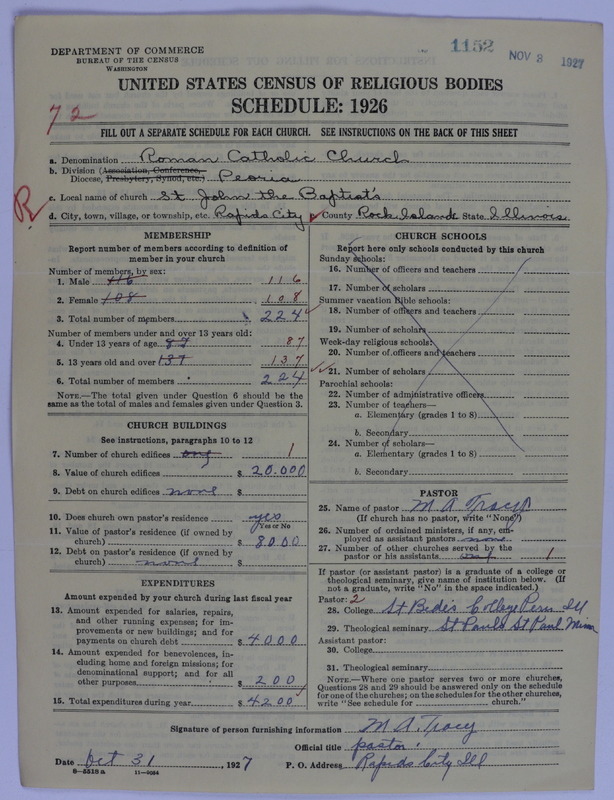 1152 NOV 8 1927
DEPARTMENT OF COMMERCE
BUREAU OF THE CENSUS
WASHINGTON
UNITED STATES CENSUS OF RELIGIOUS BODIES
SCHEDULE: 1926
72
FILL OUT A SEPARATE SCHEDULE FOR EACH CHURCH. SEE INSTRUCTIONS ON THE BACK OF THIS SHEET
a. Denomination Roman Catholic Church
b. Division (Association, Conference,
Diocese, Presbytery, Synod, etc.) Peoria
R
c. Local name of church St John the Baptist's
d. City, town, village, or township, etc. Rapids City County Rock Island State Illinois
MEMBERSHIP
Report number of members according to definition of
member in your church
Number of members, by sex:
1. Male 116 116
2. Female 108 108
3. Total number of members 224
Number of members under and over 13 years old:
4. Under 13 years of age 87 87
5. 13 years old and over 137 137
6. Total number of members 224
NOTE.—The total given under Question 6 should be the
same as the total of males and females given under Question 3.
CHURCH BUILDINGS
See instructions, paragraphs 10 to 12
7. Number of church edifices one 1
8. Value of church edifices $ 20.000
9. Debt on church edifices none $
10. Does church own pastor's residence yes
Yes or No
11. Value of pastor's residence (if owned by
church) $ 8000
12. Debt on pastor's residence (if owned by
church) none $
EXPENDITURES
Amount expended by your church during last fiscal year
13. Amount expended for salaries, repairs,
and other running expenses; for im-
provements or new buildings; and for
payments on church debt $ 4000
14. Amount expended for benevolences, in-
cluding home and foreign missions; for
denominational support; and for all
other purposes $ 200
15. Total expenditures during year $ 4200
CHURCH SCHOOLS
Report here only schools conducted by this church
Sunday schools:
16. Number of officers and teachers
17. Number of scholars
Summer vacation Bible schools:
18. Number of officers and teachers
19. Number of scholars
Week-day religious schools:
20. Number of officers and teachers
21. Number of scholars
Parochial schools:
22. Number of administrative officers
23. Number of teachers—
a. Elementary (grades 1 to 8)
b. Secondary
24. Number of scholars—
a. Elementary (grades 1 to 8)
b. Secondary
PASTOR
25. Name of pastor M A Tracy
(If church has no pastor, write "None")
26. Number of ordained ministers, if any, em-
ployed as assistant pastors none
27. Number of other churches served by the
pastor or his assistants one 1
If pastor (or assistant pastor) is a graduate of a college or
theological seminary, give name of institution below. (If
not a graduate, write "No" in the space indicated.)
Pastor: 2
28. College St Bede's College Peru Ill
29. Theological seminary St Pauls St Paul Minn
Assistant pastor:
30. College
31. Theological seminary
NOTE.—Where one pastor serves two or more churches,
Questions 28 and 29 should be answered only on the schedule
for one of the churches; on the schedules for the other churches,
write "See schedule for church."
Signature of person furnishing information M A. Tracy
Official title pastor.
Date Oct 31, 1927 P. O. Address Rapids City Ill
8—5518 a 11—9034